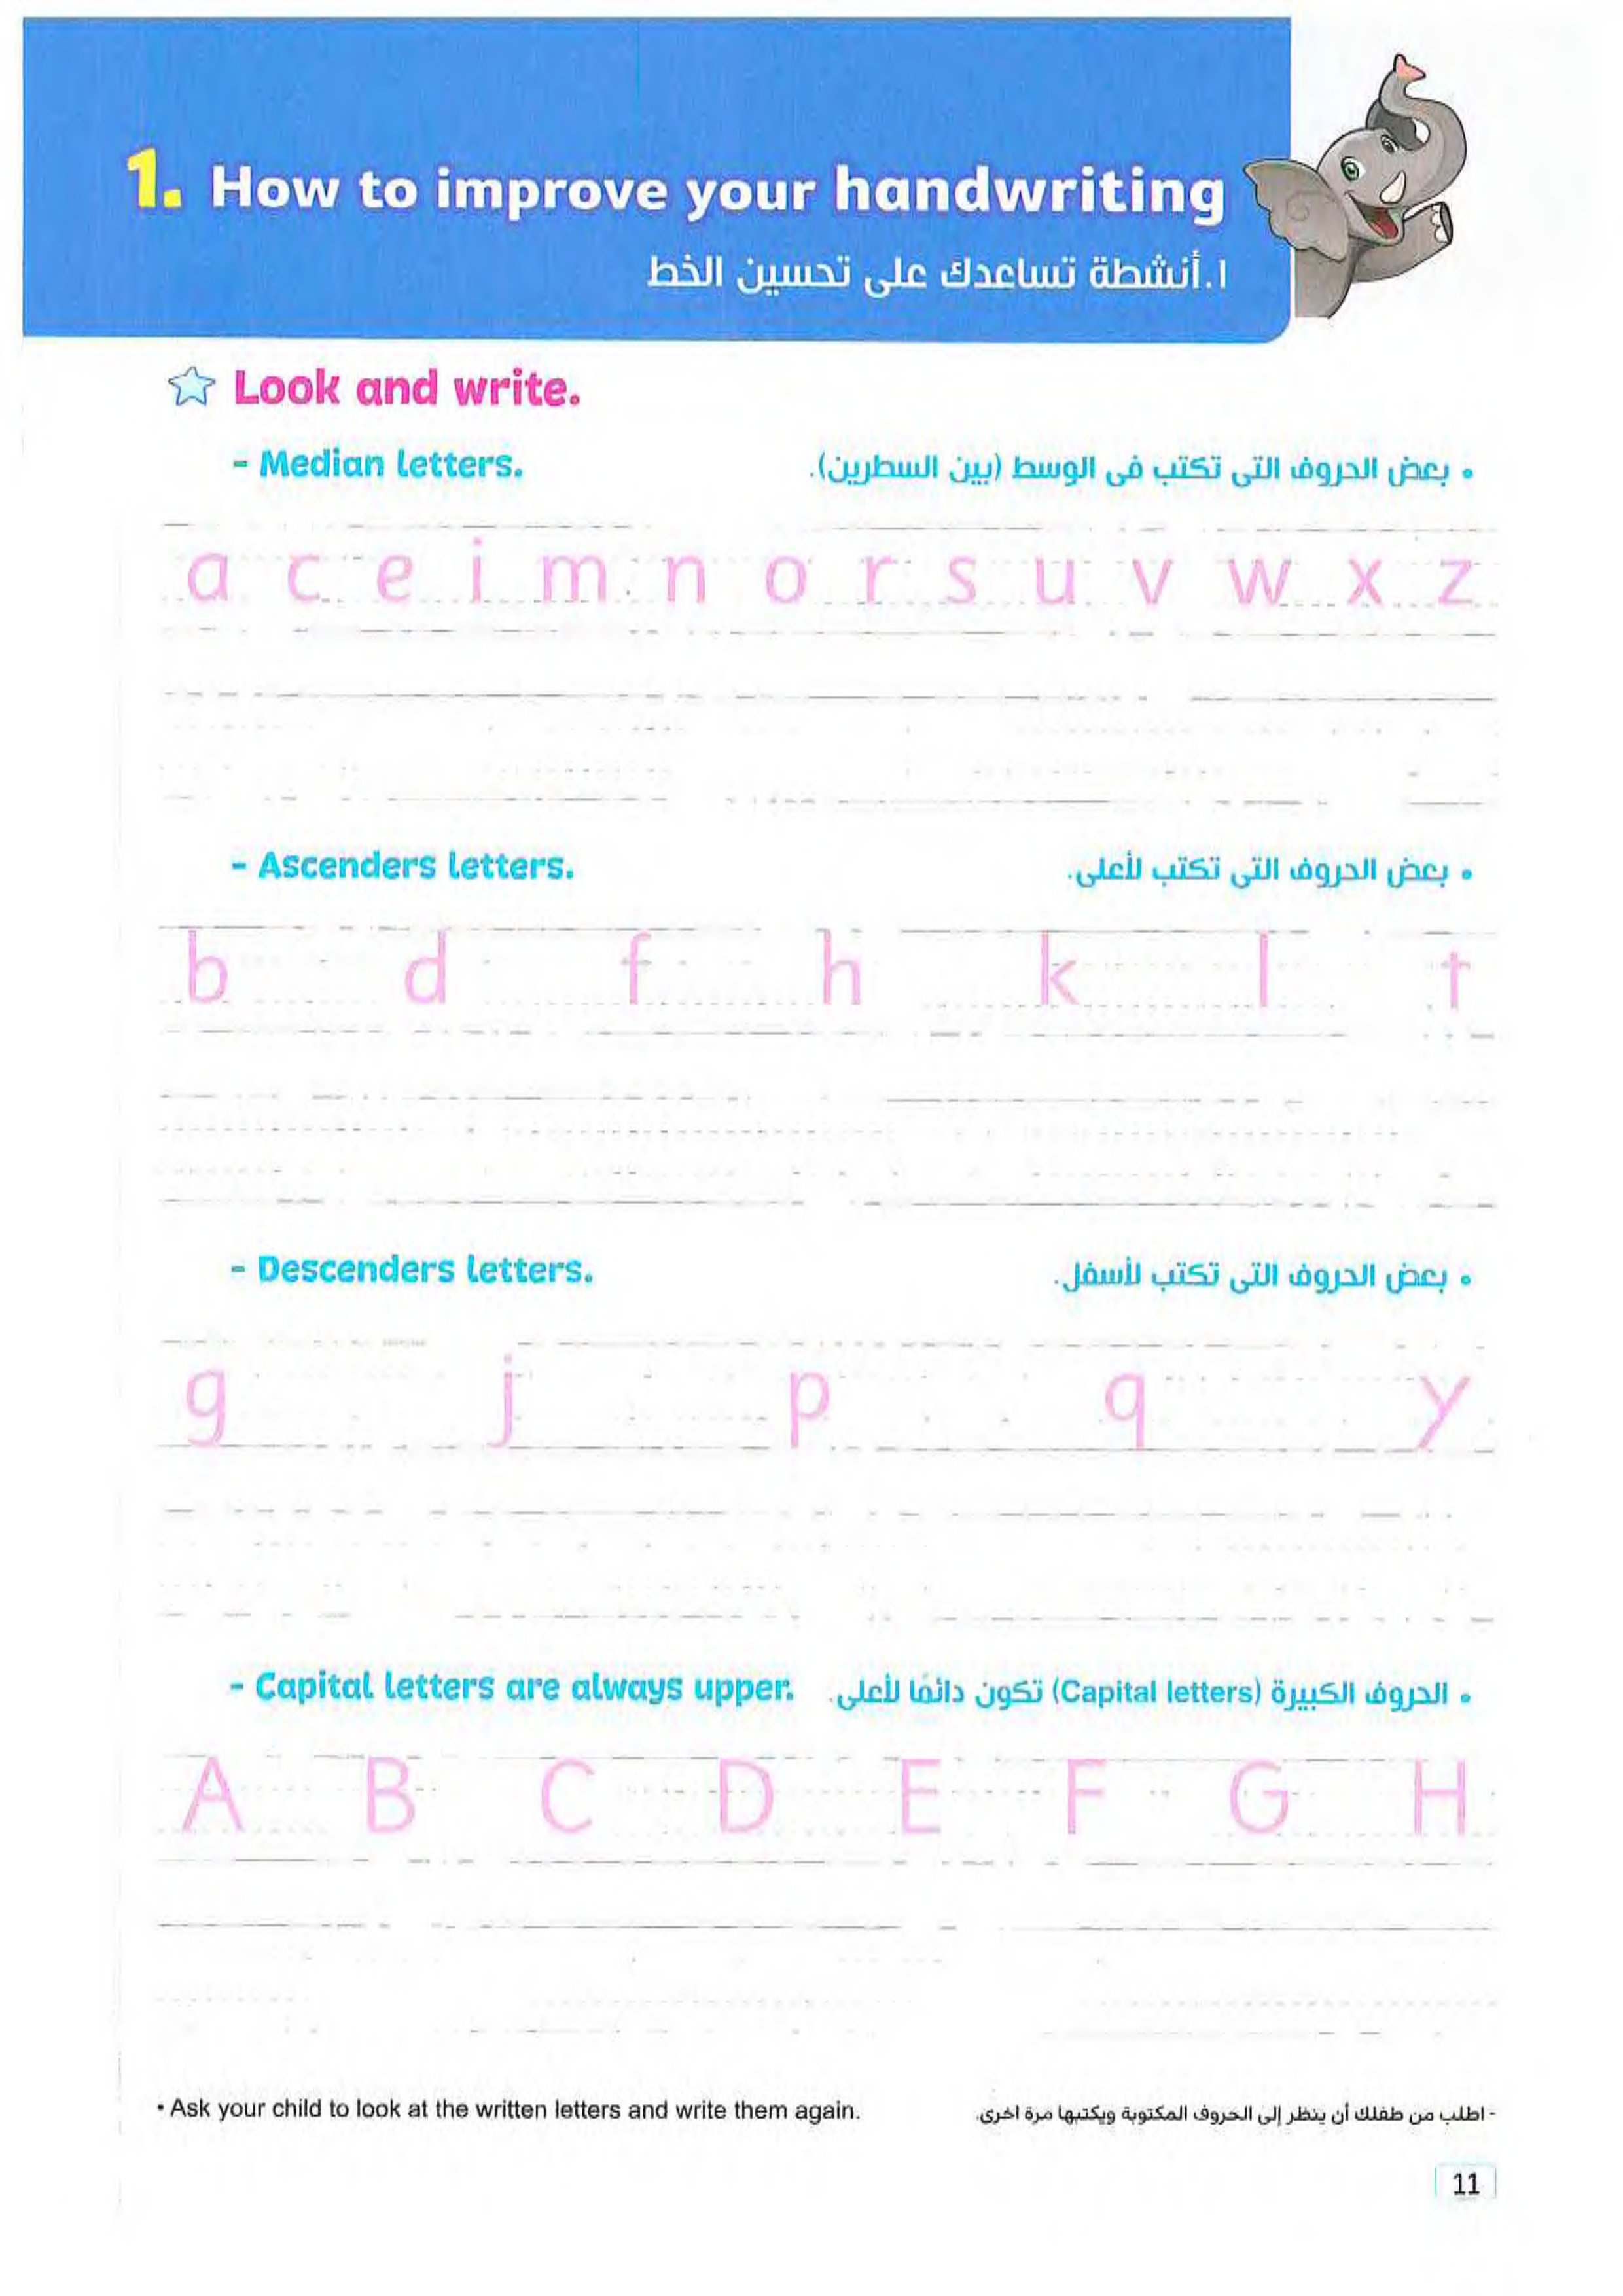 1. How to improve your handwriting
١. أنشطة تساعدك على تحسين الخط
Look and write.
- Median letters.
• بعض الحروف التى تكتب فى الوسط (بين السطرين).
a c e i m n o r s u v w x z
- Ascenders letters.
• بعض الحروف التى تكتب لأعلى.
b d f h k l t
- Descenders letters.
• بعض الحروف التى تكتب لأسفل.
g j p q y
- Capital letters are always upper.
• الحروف الكبيرة (Capital letters) تكون دائمًا لأعلى.
A B C D E F G H
• Ask your child to look at the written letters and write them again.
- اطلب من طفلك أن ينظر إلى الحروف المكتوبة ويكتبها مرة اخرى.
11